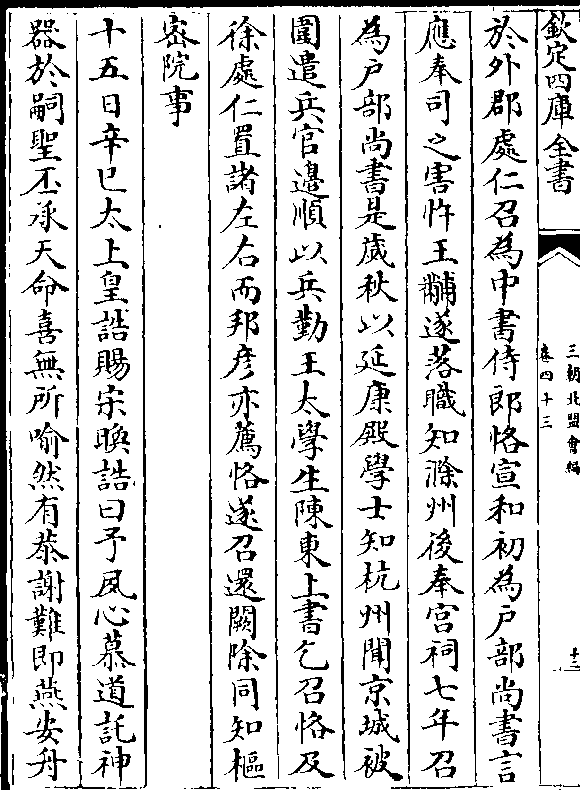 欽定四庫全書
三朝北盟會編
卷四十三
十三
於外郡處仁召為中書侍郎恪宣和初為户部尚書言
應奉司之害忤王黼遂落職知滁州後奉宫祠七年召
為户部尚書是歲秋以延康殿學士知杭州聞京城被
圍遣兵官邉順以兵勤王太學生陳東上書乞召恪及
徐處仁置諸左右而邦彦亦薦恪遂召還闕除同知樞
密院事
十五日辛巳太上皇誥賜宋㬇誥曰予夙心慕道託神
器於嗣聖丕承天命喜無所喻然有恭謝難即燕安舟